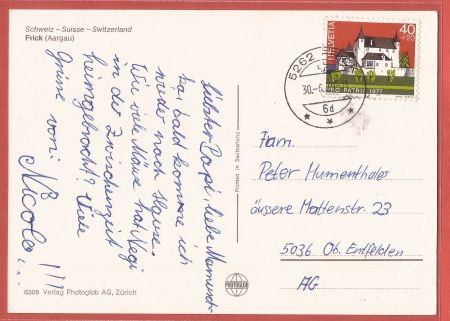 Schweiz – Suisse – Switzerland
Frick (Aargau)
Liebster Papi, liebe Mamma
bald komme ich
wieder nach Hause.
Wie viele Mäuse hat Negi
in der Zwischenzeit
heimgebracht? Viele
Grüsse von:
Nicola !!!
6305 Verlag Photoglob AG, Zürich
Printed in Switzerland
PHOTOGLOB
HELVETIA
40
+20
PRO PATRIA 1977
5262
30.-6.
6d
Fam.
Peter Mumenthaler
äussere Mattenstr. 23
5036 Ob. Entfelden
AG